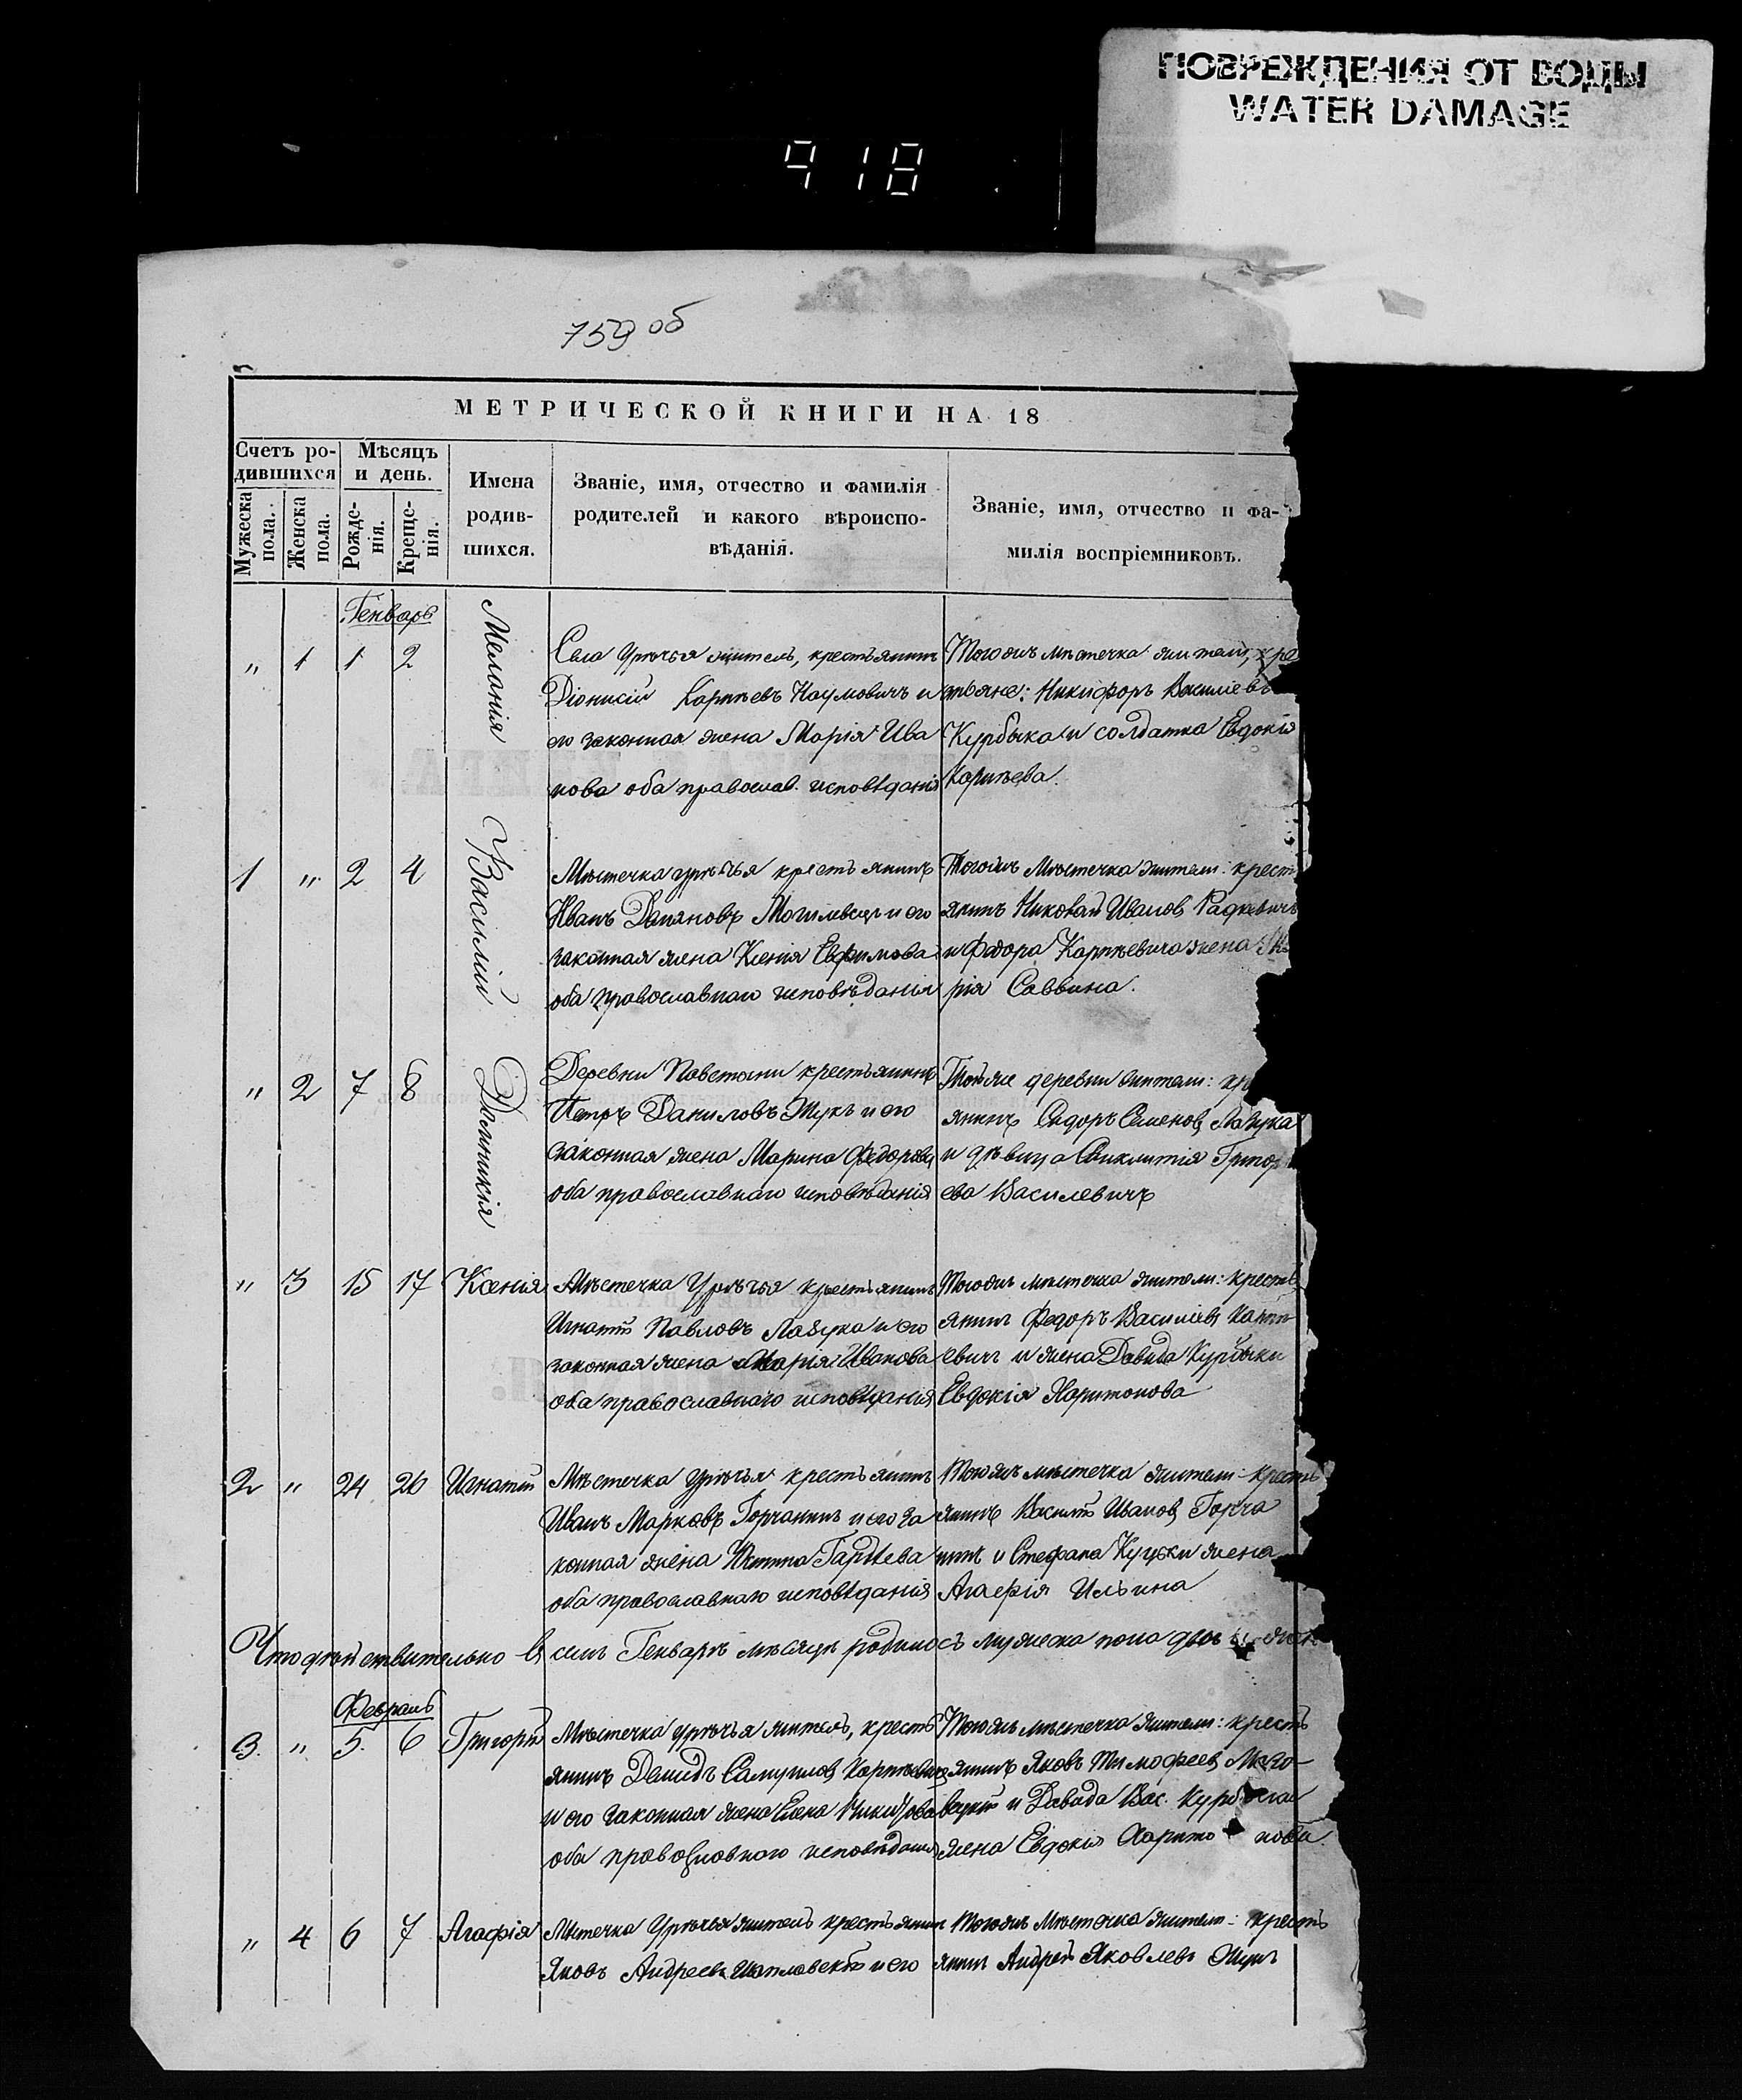 ПОВРЕЖДЕНИЯ ОТ ВОДЫ
WATER DAMAGE
918
759 об
МЕТРИЧЕСКОЙ КНИГИ НА 18
Счетъ ро-
дившихся
Мѣсяцъ
и день.
Мужеска
пола.
Женска
пола.
Рожде-
нія.
Крещe-
нія.
Имена
родив-
шихся.
Званіе, имя, отчество и фамилія
родителей и какого вѣроиспо-
вѣданія.
Званіе, имя, отчество и фа-
милія воспріемниковъ.
Генварь
" 1 1 2
Меланія
Села Урѣчья житель, крестьянинъ
Діонисій Карпѣевъ Наумовичъ и
его законная жена Марія Ива
нова оба православ. исповѣданія
Тогожъ мѣстечка жители, кре
стьяне: Никифоръ Василіевъ
Курбыка и солдатка Евдокія
Карпѣева
1 " 2 4
Василій
Мѣстечка Урѣчья крестьянинъ
Иванъ Демяновъ Могилевецъ и его
законная жена Ксенія Евфимова
оба православнаго исповѣданія
Тогожъ Мѣстечка жители: кресть
янинъ Николай Ивановъ Радкевичъ
и Федора Карпѣевича жена
рія Саввина.
" 2 7 8
Домникія
Деревни крестьянинъ
Петръ Даниловъ Жукъ и его
законная жена Марина Федорова
оба православнаго исповѣданія
Тойже деревни жители: кр
янинъ Сидоръ Семеновъ Лазука
и дѣвица Григор
ева Василевичъ
" 3 15 17 Ксенія
Мѣстечка Урѣчья крестьянинъ
Игнатій Павловъ Лазука и его
законная жена Марія Иванова
оба православнаго исповѣданія
Тогожъ мѣстечка жители: кресть
янинъ Федоръ Василіевъ Карпѣ
евичъ и жена Давида Курбыки
Евдокія Харитонова
2 " 24 26 Игнатій
Мѣстечка Урѣчья крестьянинъ
Иванъ Марковъ Горчанинъ и его за
конная жена Гардѣева
оба православнаго исповѣданія
Тогожъ мѣстечка жители: кресть
янинъ Василій Ивановъ Горча
нинъ и Стефана жена
Агафія Ильина
Что дѣйствительно въ семъ Генварѣ мѣсяцѣ родилось мужеска пола два и
Февраль
3. " 5. 6 Григорій
Мѣстечка Урѣчья житель, кресть
янинъ Демидъ Самуиловъ Карпѣевичъ
и его законная жена Елена
оба православнаго исповѣданія
Тогожъ мѣстечка жители: кресть
янинъ Яковъ Тимофеевъ
и Давида Вас. Курбыки
жена Евдокія Харито нова
" 4 6 7 Агафія
Мѣстечка Урѣчья житель крестьянинъ
Яковъ Андреевъ и его
Тогожъ Мѣстечка жители: кресть
янинъ Андрей Яковлевъ Жукъ